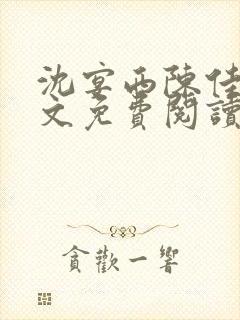 沈宴西陳佳
文免費閱讀
貪歡一響